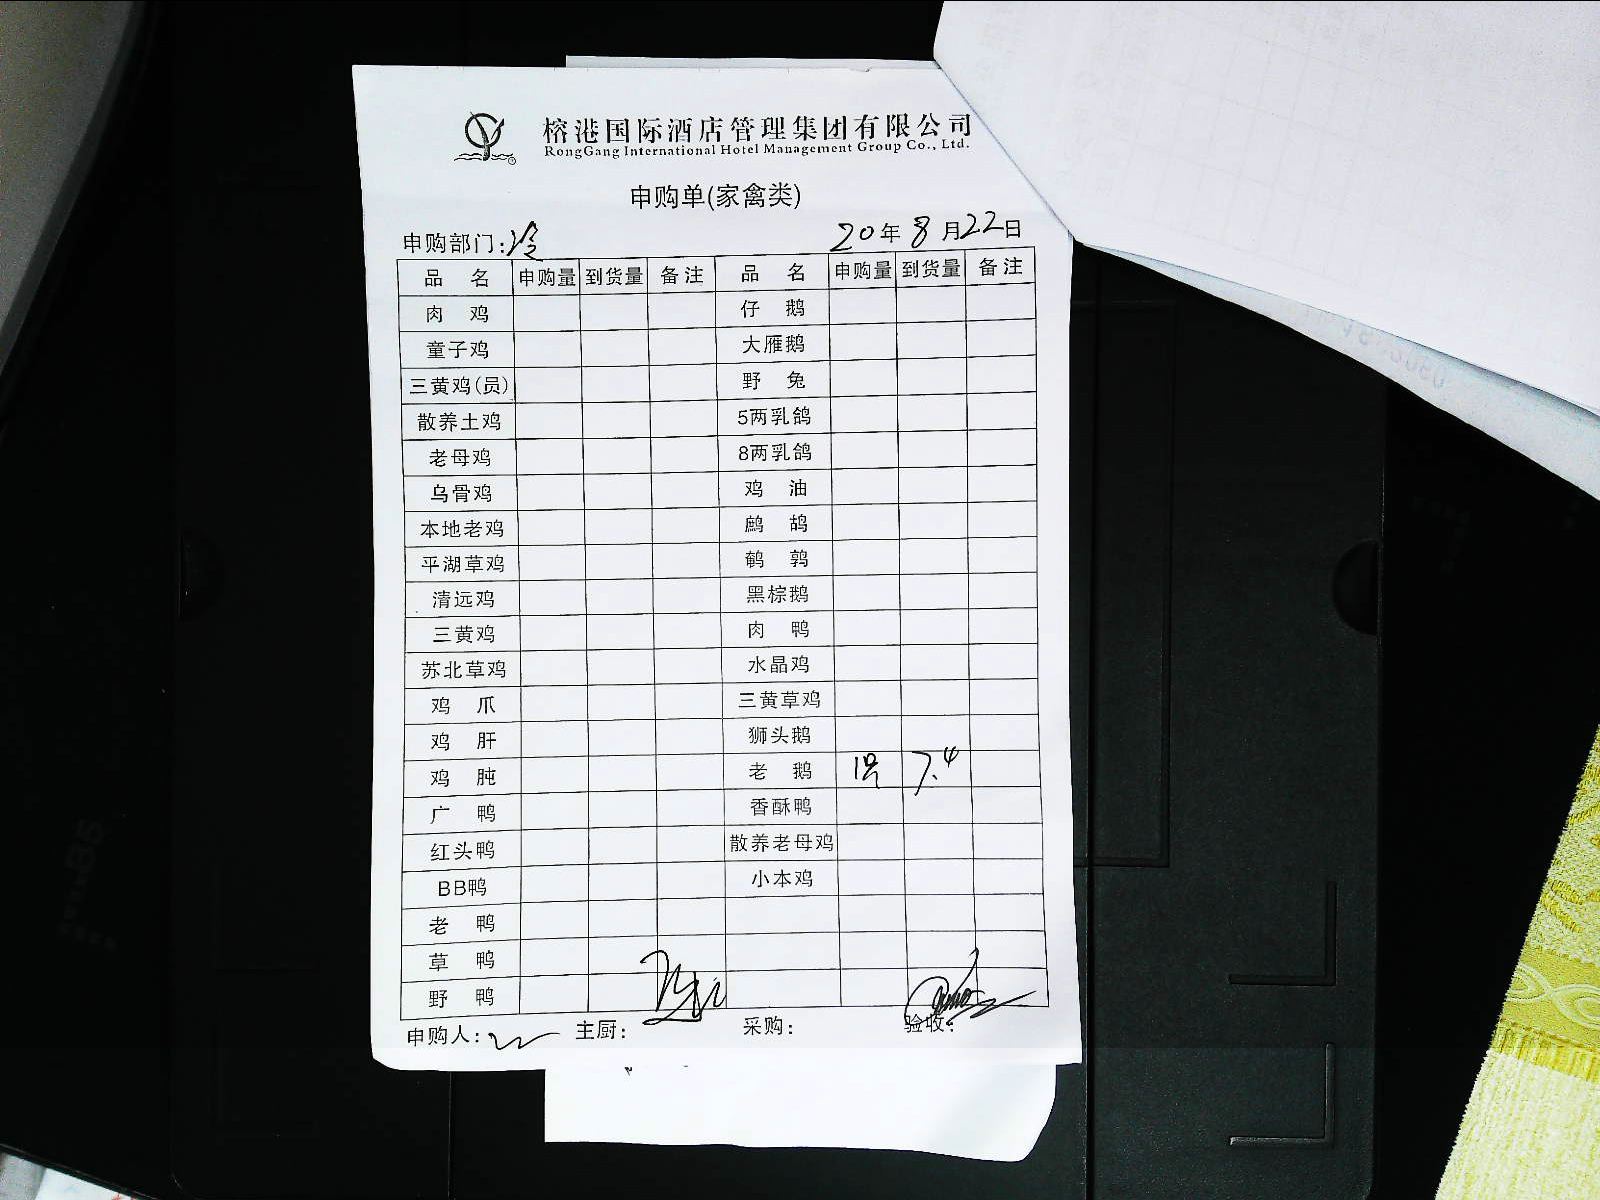 榕港国际酒店管理集团有限公司
RongGang International Hotel Management Group Co., Ltd.
申购单(家禽类)
申购部门:冷 20年8月22日
品名 申购量 到货量 备注 品名 申购量 到货量 备注
肉鸡 仔鹅
童子鸡 大雁鹅
三黄鸡(员) 野兔
散养土鸡 5两乳鸽
老母鸡 8两乳鸽
乌骨鸡 鸡油
本地老鸡 鹧鸪
平湖草鸡 鹌鹑
清远鸡 黑棕鹅
三黄鸡 肉鸭
苏北草鸡 水晶鸡
鸡爪 三黄草鸡
鸡肝 狮头鹅
鸡肫 老鹅 1只 7.4
广鸭 香酥鸭
红头鸭 散养老母鸡
BB鸭 小本鸡
老鸭
草鸭
野鸭
申购人: 主厨: 采购: 验收: